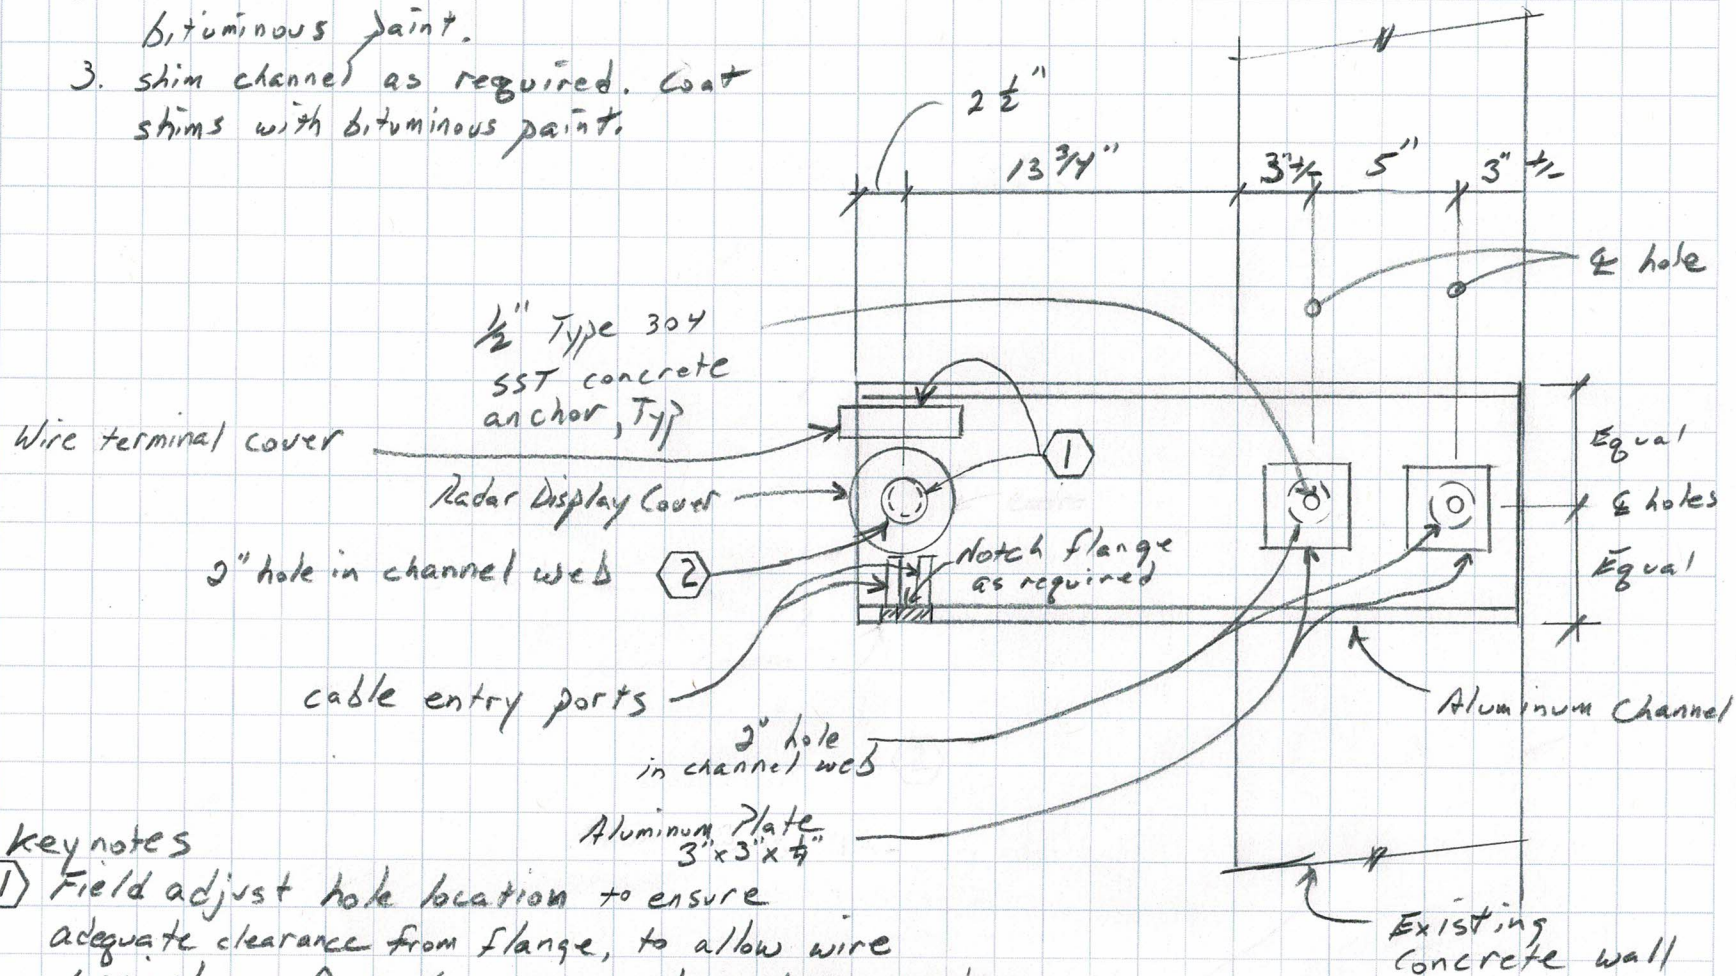 bituminous paint.
3. shim channel as required. Coat
shims with bituminous paint.
2 1/2"
13 3/4"
3" +/-
5"
3" +/-
℄ hole
1/2" Type 304
SST concrete
anchor, Typ
Wire terminal cover
Radar Display Cover
1
2" hole in channel web
2
Notch flange
as required
Equal
℄ holes
Equal
cable entry ports
Aluminum Channel
2" hole
in channel web
Aluminum Plate
3" x 3" x 1/4"
Existing
concrete wall
Keynotes
1 Field adjust hole location to ensure
adequate clearance from flange, to allow wire